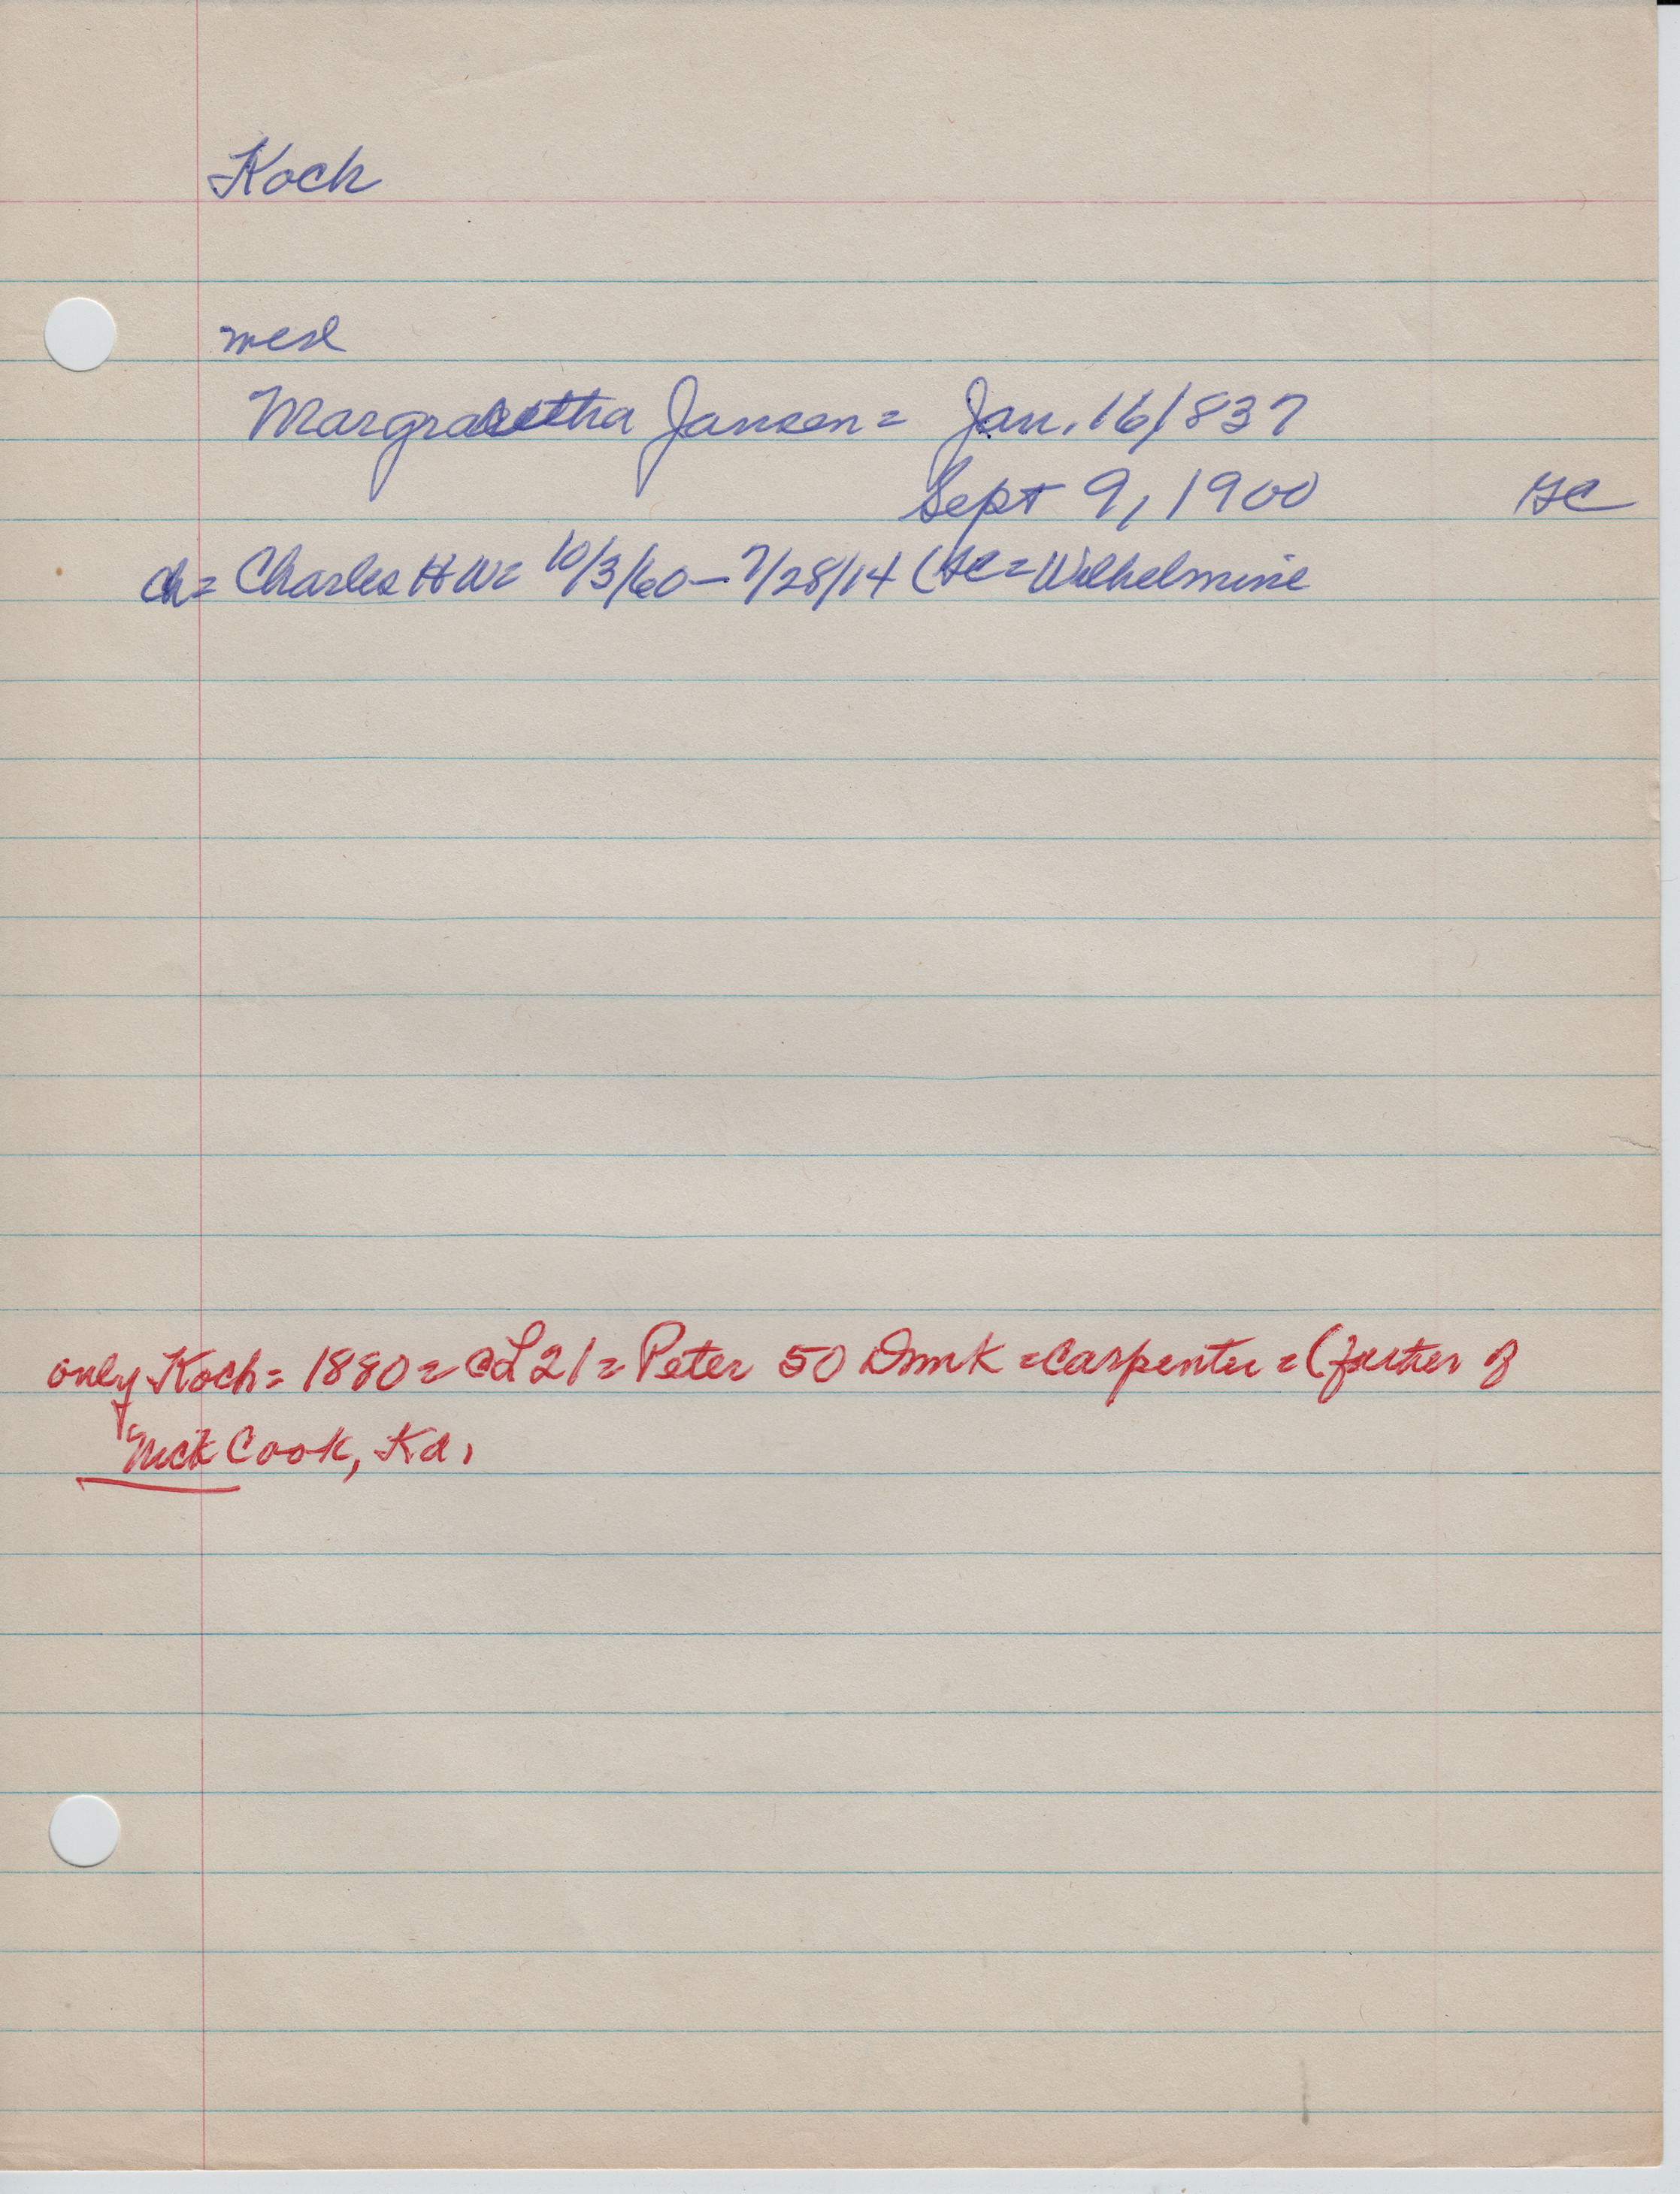 Koch
med
Margraretha Jansen = Jan. 16, 1837
Sept 9, 1900 GC
ch = Charles H W = 10/3/60 – 7/28/14 (GC = Wilhelmine
only Koch = 1880 = CL 21 = Peter 50 Dmk = carpenter = (father of
Nick Cook, Kd.